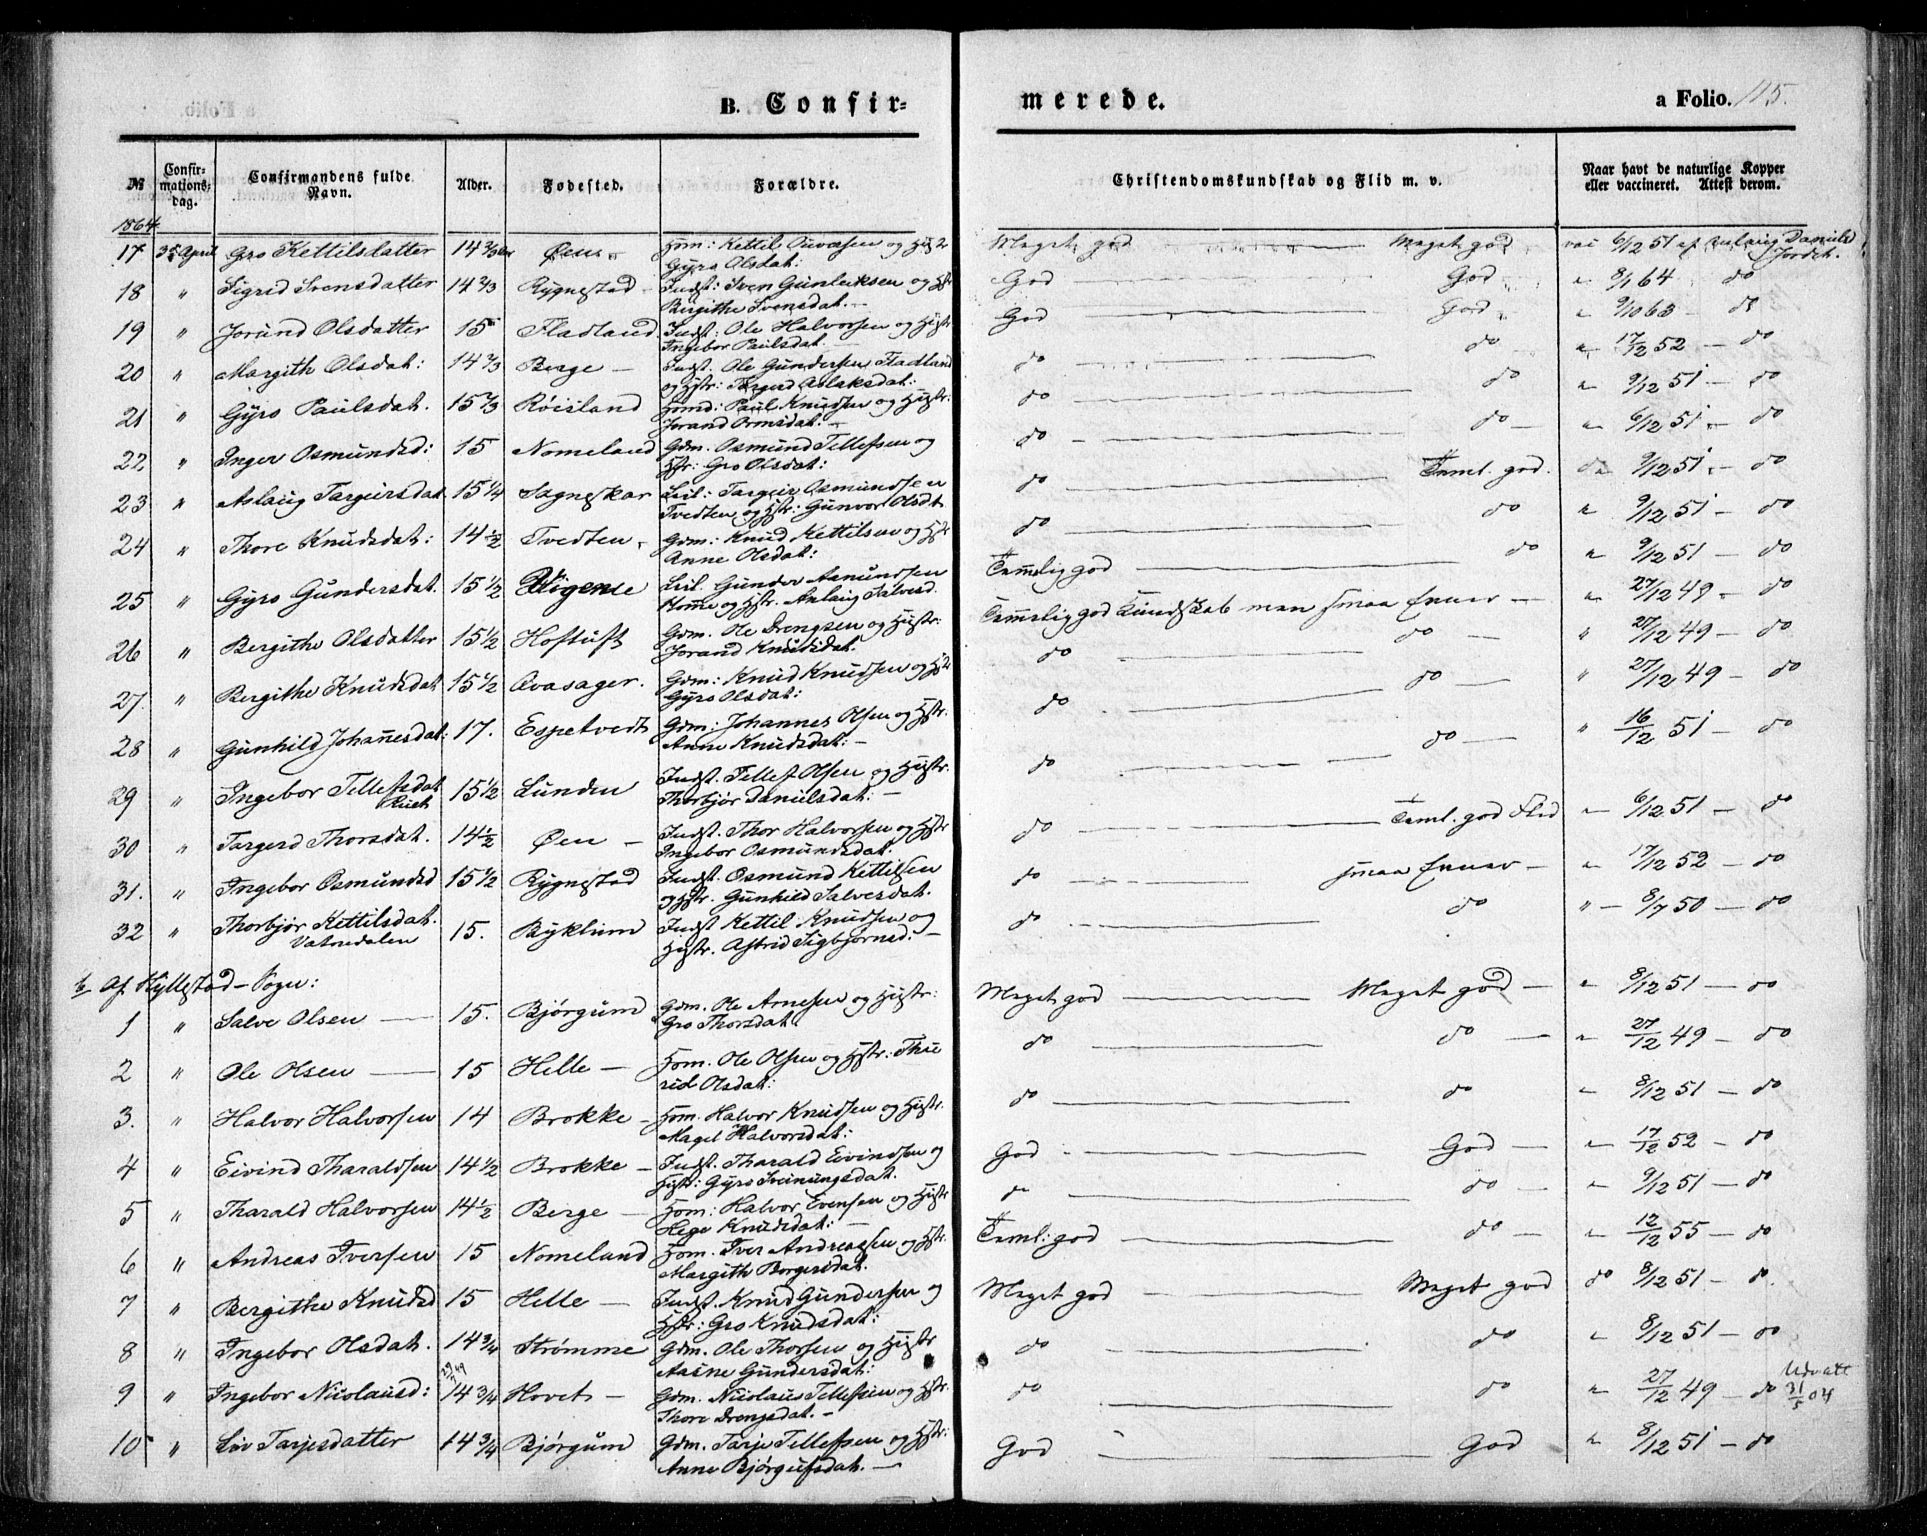 B. Confir=
merede.
a Folio. 115.
№
Confir-mations-dag.
Confirmandens fulde Navn.
Alder.
Fødested.
Forældre.
Christendomskundskab og Flid m. v.
Naar havt de naturlige Kopper eller vaccineret. Attest derom.
1864
17 3die April Gro Kettilsdatter 14 2/3 Øen Hom: Kettil og Hstr Meget god Meget god vac 6/12 51 af Aslaug Daniels
Gyro Olsdat: Jordet.
18 " Sigrid Svensdatter 14 2/3 Rygnestad Indst: Sven Gunleiksen og Hstr God God " 8/1 64 do
Birgithe Svensdat.
19 " Jorand Olsdatter 15 Fladland Indst: Ole Halvorsen og Hustr God God " 9/10 63 - do
Ingebor Paulsdat:
20 " Margith Olsdat: 14 2/3 Berge - Indst. Ole Gundersen Fladland do do " 17/12 52 - do
og Hstr: Targerd Aslaksdat:
21 " Gyro Paulsdat. 15 2/3 Røisland Homd: Paul Knudsen og Hustr: do do " 9/12 51 - do
Jorand Ormsdat: -
22 " Inger Osmundsd: 15 Nomeland Gdm. Osmund Tellefsen og do do - " 6/12 51 - do
Hstr: Gro Olsdat:
23 " Aslaug Targeirsdat 15 1/4 Sagneskar Leil: Targeir Osmundsen do Teml. god. do 9/12 51 - do
Tvedten og Hstr: Gunvor Olsdt
24 " Thore Knudsdat: 14 1/2 Tvedten Gdm: Knud Kettilsen og Hstr do do " 9/12 51 - do
Anne Olsdat:
25 " Gyro Gundersdat. 15 1/2 Leil. Gunder Asmundsen Temelig god do " 9/12 51 - do
Homme og Hstr. Aslaug Salvesd.
26 " Bergithe Olsdatter 15 1/2 Hoftuft Gdm. Ole Drengsen og Hustr: Temmelig god Kundskab men smaa Evner - " 27/12 49 - do
Jorand Knudsdat.
27. " Bergithe Knudsdat 15 1/2 Avasager. Gdm: Knud Knudsen og Hstr do do - " 27/12 49 - do
Gyro Olsdat:
28 " Gunhild Johanesdat: 17. Espetvedt Gdm: Johannes Olsen og Hstr. do do - " 27/12 49 - do
Anne Knudsdat: -
29 " Ingebor Tellefsdat 15 1/2 Lunden Indst. Tellef Olsen og Hustr. do do - " 16/12 51 - do
Thorbjør Danielsdat: -
30 " Targerd Thorsdat. 14 1/2 Øen - Indst. Thor Halvorsen og Hstr do Teml. god Flid " 6/12 51 - do
Ingebor Osmundsdat.
31. " Ingebor Osmundsd 15 1/2 Rygnestad Indst. Osmund Kettilsen do smaa Evner - " 17/12 52 - do
og Hstr. Gunhild Salvesdat.
32 " Thorbjør Kettilsdat. 15. Byklum Indst Kettil Knudsen og do do " - 8/7 50 - do
Vatnedalen Hustr. Astrid Sigbjørnsd. -
b Af Hyllestad-Sogn:
1 " Salve Olsen 15. Bjørgum Gdm. Ole Arnesen og Hustr: Meget god Meget god - " 8/12 51 - do
Gro Thorsdat.
2 " Ole Olsen 15 Helle - Hom. Ole Olsen og Hstr: Thu do do - " 27/12 49 - do
rid Olsdat:
3. " Halvor Halvorsen 14 Brokke - Hom. Halvor Knudsen og Hustr. do do " 8/12 51 - do
Magel Halvorsdat:
4 " Eivind Tharaldsen 14 1/2 Brokke - Indst. Tharald Eivindsen og God God - " 17/12 52 - do
Hstr: Gyro Sveinungsdat.
5 " Tharald Halvorsen 14 1/2 Berge - Hom: Halvor Evensen og Hustr do do - " 9/12 51 - do
Hege Knudsdat: -
6 " Andreas Iversen 15 Nomeland Hom. Iver Andreassen og Hstr. Teml: god do - " 12/12 55 - do
Margith Borgersdat.
7 " Bergithe Knudsd 15 Helle - Indst. Knud Gundersen og Meget god Meget god do 8/12 51 - do.
Hstr: Gro Knudsdat:
8 " Ingebor Olsdat. 14 3/4 Strømme Gdm. Ole Thorsen og Hustr do do " 8/12 51 - do
Aasne Gundersdat:
9 " Ingebor Nicolausd: 14 3/4 Hovet - Gdm. Nicolaus Tellefsen og Hstr. do do " 27/12 49 - do Udvatt 31/5 04
Thore Drengsdat. -
10 " Liv Tarjesdatter 14 3/4 Bjørgum Gdm. Tarje Tellefsen og Hustr: God God " 8/12 51 - do
Anne Bjørgufsdat. -